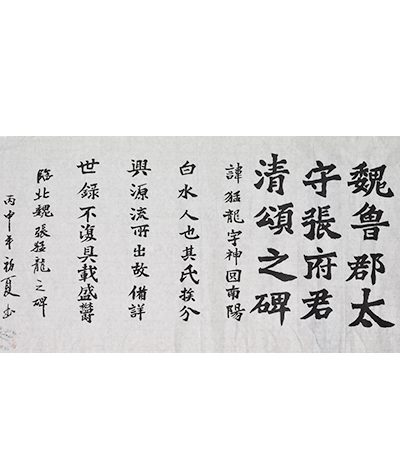 魏鲁郡太
守張府君
清頌之碑
諱猛龍字神囧南陽
白水人也其氏族分
興源流所出故備詳
世錄不復具載盛欝
臨北魏張猛龍之碑
丙申年初夏